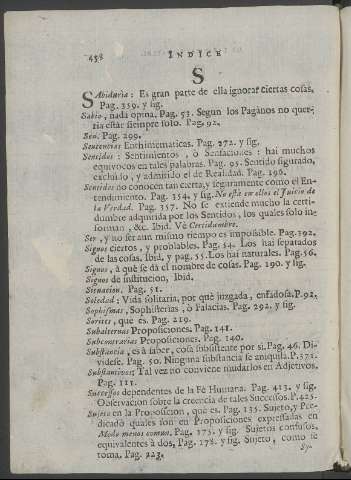 458 INDICE
S
SAbiduria: Es gran parte de ella ignorar ciertas cosas,
Pag. 359. y sig.
Sabio, nada opina, Pag. 53. Segun los Paganos no quer-
ria estàr siempre solo. Pag. 92.
Sen. Pag. 299.
Sentencias Enthimematicas. Pag. 272. y sig.
Sentidos: Sentimientos, ò Sensaciones: hai muchos
equivocos en tales palabras. Pag. 95. Sentido figurado,
excluìdo, y admitido el de Realidad. Pag. 196.
Sentidos no conocen tan cierta, y seguramente como el En-
tendimiento. Pag. 354. y sig. No està en ellos el Juicio de
la Verdad. Pag. 357. No se extiende mucho la certi-
dumbre adquirida por los Sentidos, los quales solo in-
forman, &c. Ibid. Vè Certidumbre.
Ser, y no ser aun mismo tiempo es imposible. Pag. 392.
Signos ciertos, y problables. Pag. 54. Los hai separados
de las cosas. Ibid. y pag. 55. Los hai naturales. Pag. 56.
Signos, à què se dà el nombre de cosas. Pag. 190. y sig.
Signos de institucion, Ibid.
Situacion. Pag. 51.
Soledad: Vida solitaria, por què juzgada, enfadosa. P. 92.
Sophismas, Sophisterias, ò Falacias. Pag. 292. y sig.
Sorites, què es. Pag. 219.
Subalternas Proposiciones. Pag. 141.
Subcontrarias Proposiciones. Pag. 140.
Substancia, es à saber, cosa subsistente por si. Pag. 46. Di-
videse. Pag. 50. Ninguna substancia se aniquila. P. 371.
Substantivos; Tal vez no conviene mudarlos en Adjetivos.
Pag. 111.
Sucessos dependentes de la Fè Humana. Pag. 413. y sig.
Observacion sobre la creencia de tales Sucessos. P. 425.
Sujeto en la Proposicion, què es. Pag. 135. Sujeto, y Pre-
dicado quales son en Proposiciones expressadas en
Modo menos comun. Pag. 175. y sig. Sujetos confusos,
equivalentes à dos, Pag. 178. y sig. Sujeto, como se
toma. Pag. 223.
Sy-